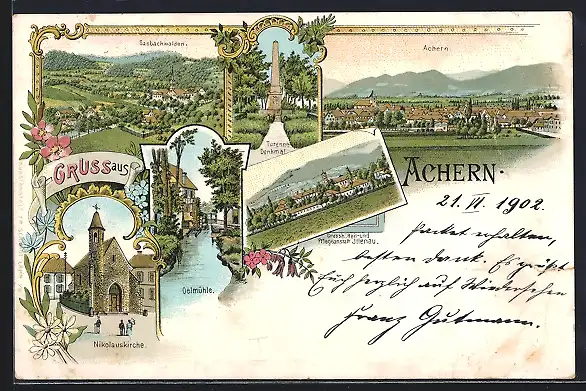 Sasbachwalden.
Achern
Turenne
Denkmal.
GRUSS aus
ACHERN.
21. VI. 1902.
Grossh. Heil- und
Pflegeanstalt Illenau.
Packet erhalten,
besten Dank. Es grüßt
Euch herzlich auf Wiedersehen
Franz Gutmann.
Oelmühle.
Nikolauskirche.